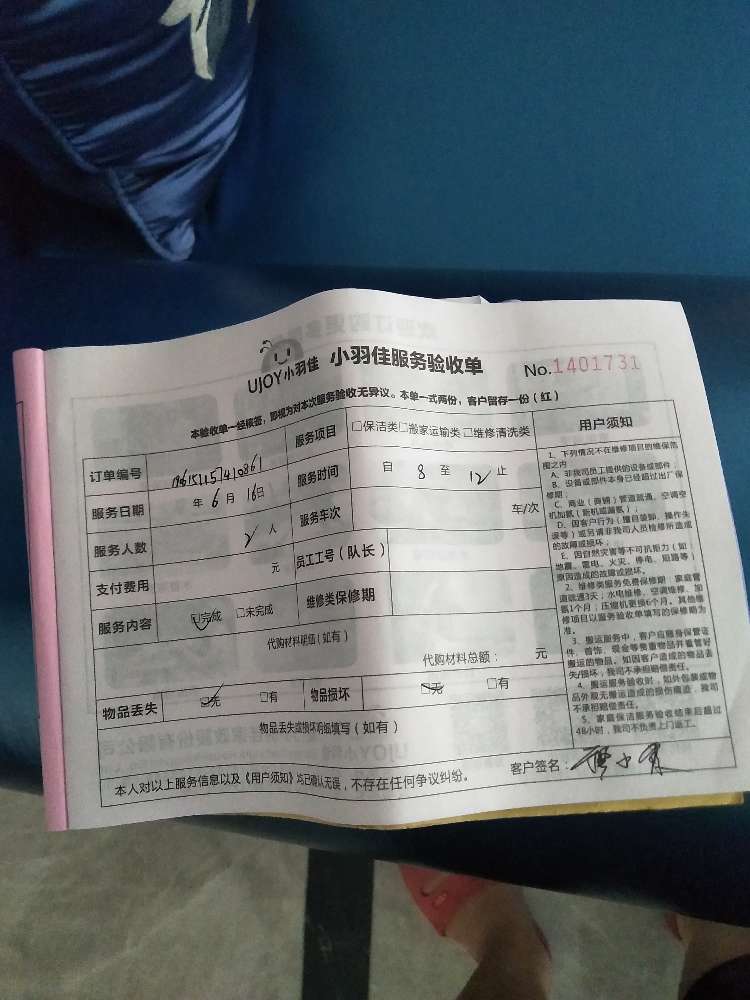 UJOY小羽佳 小羽佳服务验收单 No.1401731
本验收单一经核签，即视为对本次服务验收无异议。本单一式两份，客户留存一份（红）
订单编号 服务项目 □保洁类□搬家运输类□维修清洗类
服务日期 年 6 月 16日 服务时间 自 8 至 12 止
服务人数 2 人 服务车次 车/次
支付费用 元 员工工号（队长）
服务内容 □完成 □未完成 维修类保修期
代购材料明细（如有） 代购材料总额： 元
物品丢失 □无 □有 物品损坏 □无 □有
物品丢失或损坏明细填写（如有）
本人对以上服务信息以及《用户须知》均已确认无误，不存在任何争议纠纷。 客户签名：
用户须知
1、下列情况不在维修项目的维保范
围之内
A、非我司员工提供的设备或部件
B、设备或部件本身已经超过出厂保
修期；
C、商业（商铺）管道疏通，空调空
机加氨（新机或漏氨）；
D、因客户行为（擅自装卸、操作失
误等）或另请非我司人员检修所造成
的故障或损坏；
E、因自然灾害等不可抗拒力（如：
地震、雷电、火灾、停电、短路等）
原因造成的故障或损坏。
2、维修类服务免费保修期：家庭管
道疏通3天；水电维修、空调维修、加
氨1个月；压缩机更换6个月。其他维
修项目以服务验收单填写的保修期为
准。
3、搬运服务中，客户应随身保管证
件、首饰、现金等贵重物品并看管好
搬运的物品。如因客户造成的物品丢
失/损坏，我司不承担赔偿责任。
4、搬运服务验收时，如外包装或物
品外观无搬运造成的损伤痕迹，我司
不承担赔偿责任。
5、家庭保洁服务验收结束后超过
48小时，我司不负责上门返工。